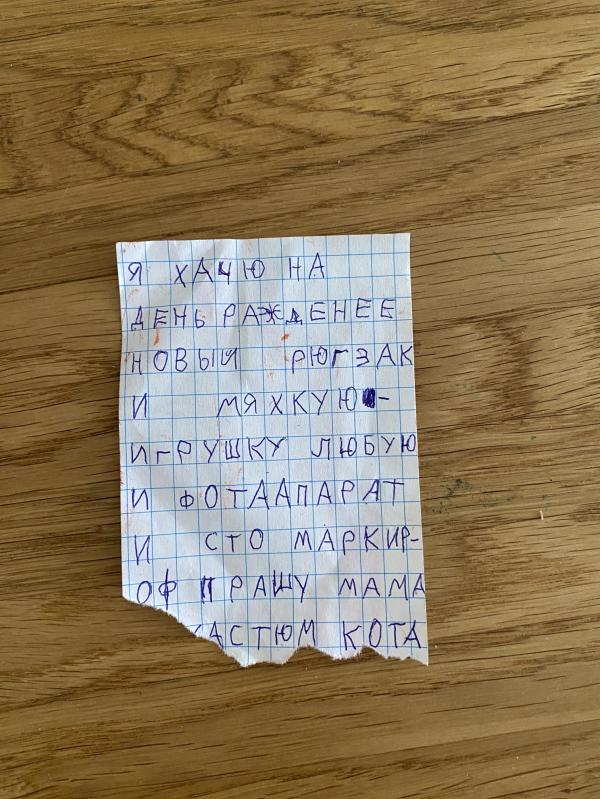 Я ХАЧЮ НА
ДЕНЬ РАЖДЕНЕЕ
НОВЫЙ РЮГЗАК
И МЯХКУЮ-
ИГРУШКУ ЛЮБУЮ
И ФОТААПАРАТ
И СТО МАРКИР-
ОФ ПРАШУ МАМА
КОТА